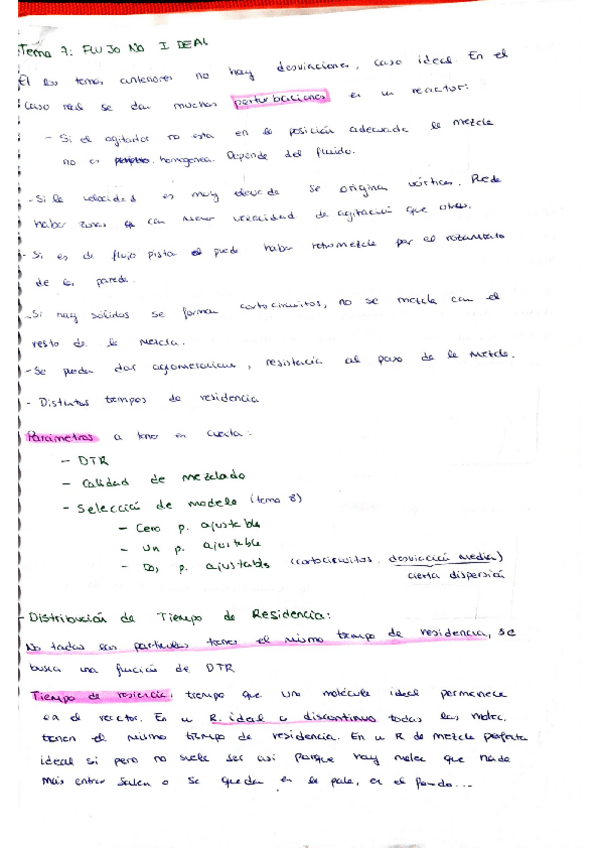 Tema 7: FLUJO NO IDEAL
El los temas anteriores no hay desviaciones, caso ideal. En el
caso real se dan muchas perturbaciones en un reactor:
- Si el agitador no esta en la posición adecuada la mezcla
no es homogenea. Depende del fluido.
- Si la velocidad es muy elevada se origina vórtices. Puede
haber zonas con menor velocidad de agitación que otras.
- Si es de flujo piston puede haber retromezcla por el rozamiento
de la pared.
- Si hay sólidos se forman cortocircuitos, no se mezcla con el
resto de la mezcla.
- Se pueden dar aglomeraciones, resistencia al paso de la mezcla.
- Distintos tiempos de residencia
Parámetros a tener en cuenta:
- DTR
- Calidad de mezclado
- Selección de modelo (tema 8)
- Cero p. ajustable
- Un p. ajustable
- Dos p. ajustables (cortocircuitos, desviación media)
cierta dispersión
- Distribución de Tiempo de Residencia:
No todas las particulas tienen el mismo tiempo de residencia, se
busca una función de DTR
Tiempo de residencia: tiempo que una molécula ideal permanece
en el reactor. En un R. ideal o discontinuo todas las molec.
tienen el mismo tiempo de residencia. En un R de mezcla perfecta
ideal si pero no suele ser así porque hay molec que nada
más entrar salen o se quedan en la pala, en el fondo...